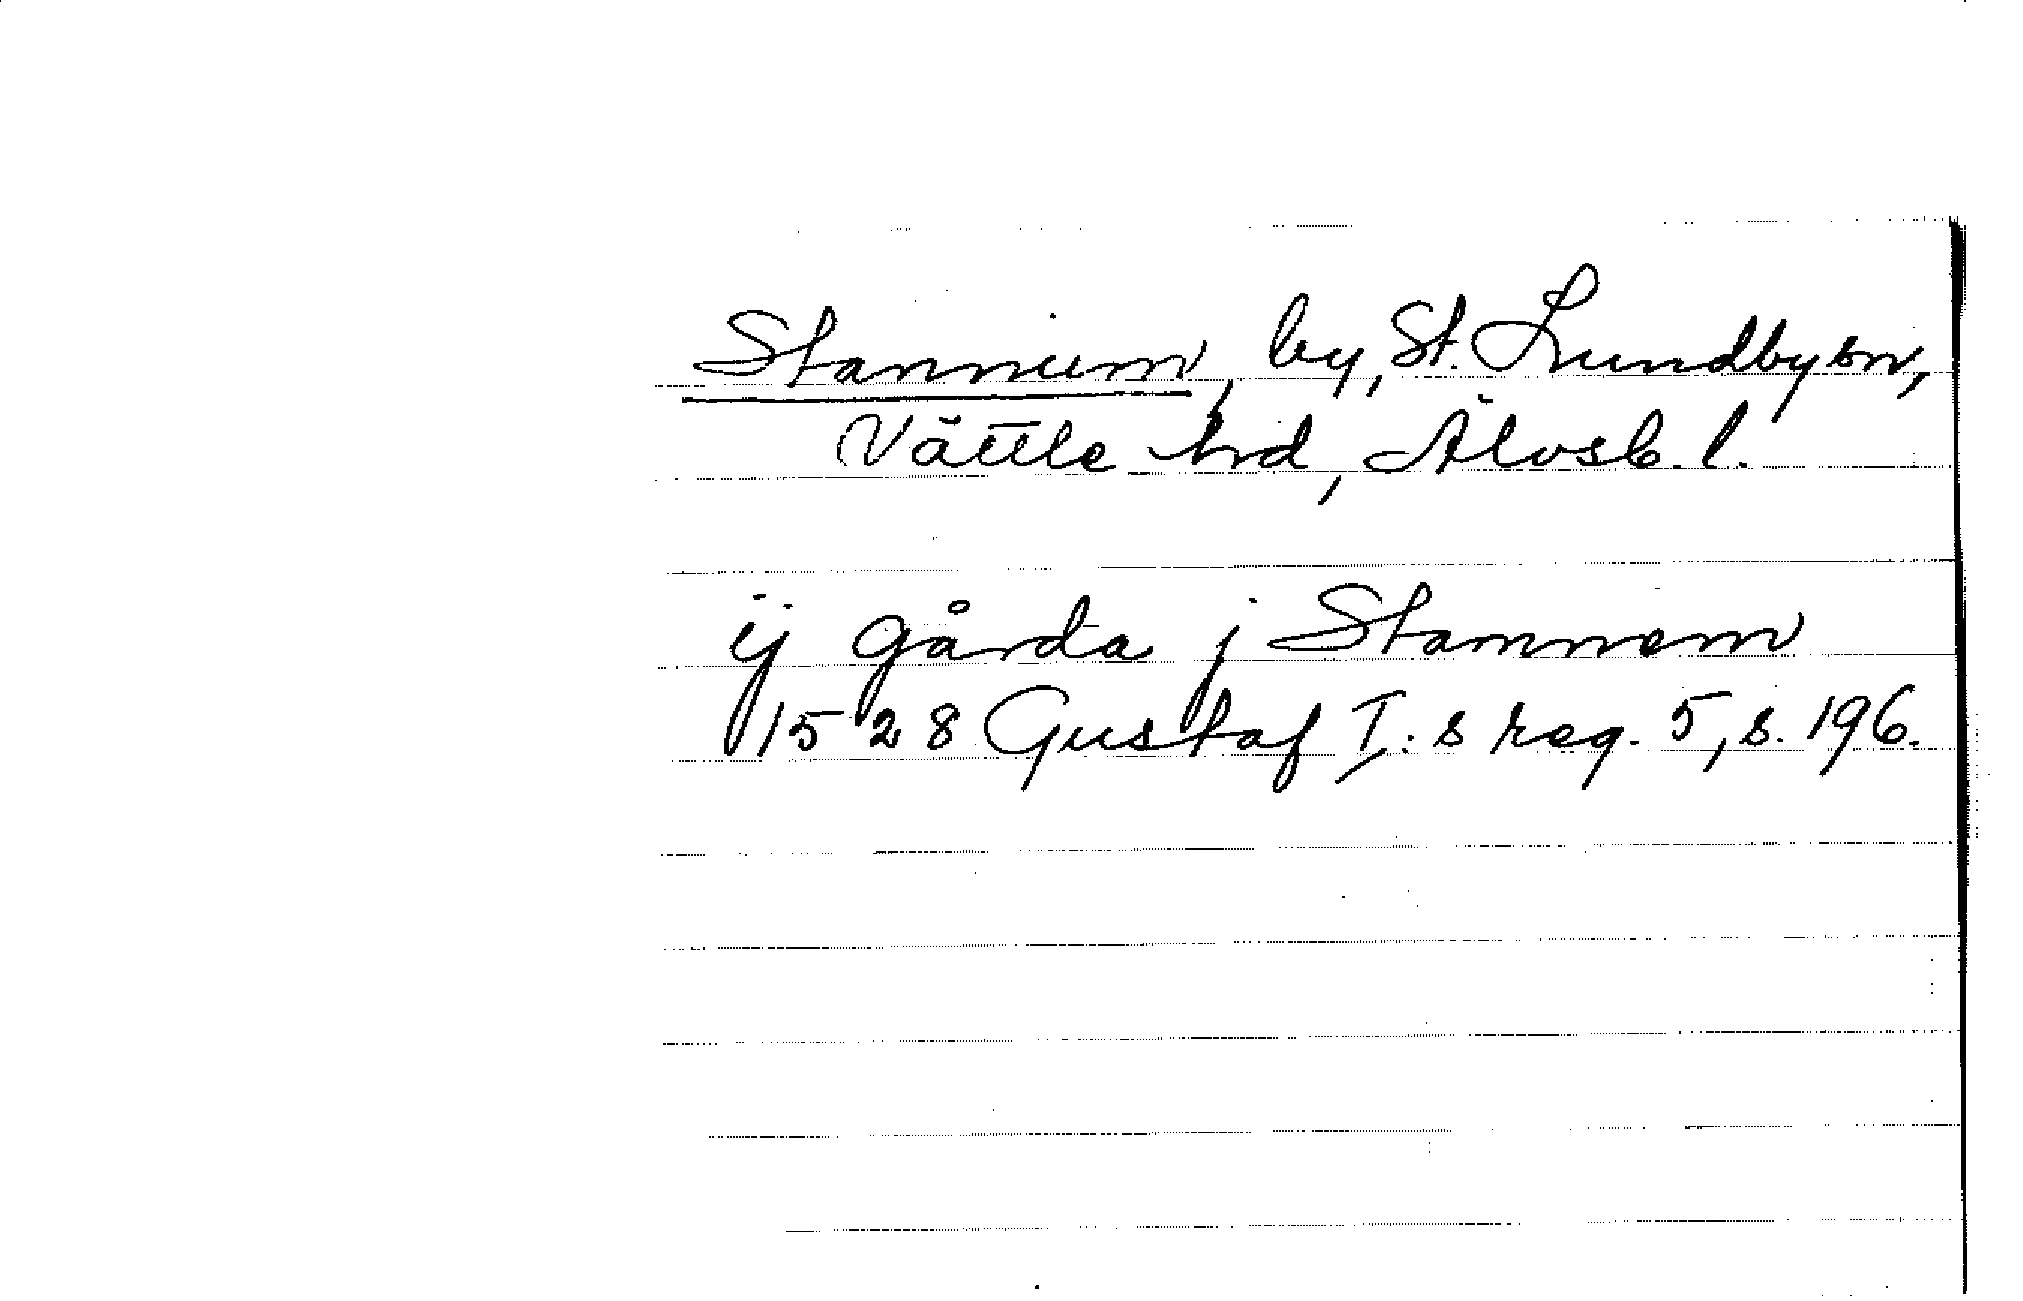 Stannum, by, St. Lundby sn,
Vättle hrd, Älvsb. l.
ij gårda j Stamnem
1528 Gustaf I:s reg. 5, s. 196.